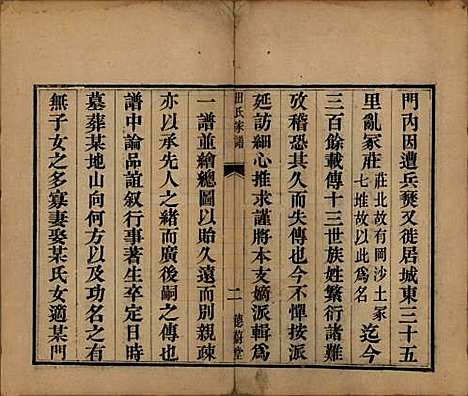 門內因遭兵燹又徙居城東三十五
里亂冢莊莊北故有岡沙土冢七堆故以此爲名迄今
三百餘載傳十三世族姓繁衍諸難
攷稽恐其久而失傳也今不憚按派
延訪細心推求謹將本支嫡派輯爲
田氏家譜 二 德蔚堂
一譜並繪總圖以貽久遠而别親疎
亦以承先人之緒而廣後嗣之傳也
譜中論品誼叙行事著生卒定日時
墓葬某地山向何方以及功名之有
無子女之多寡妻娶某氏女適某門